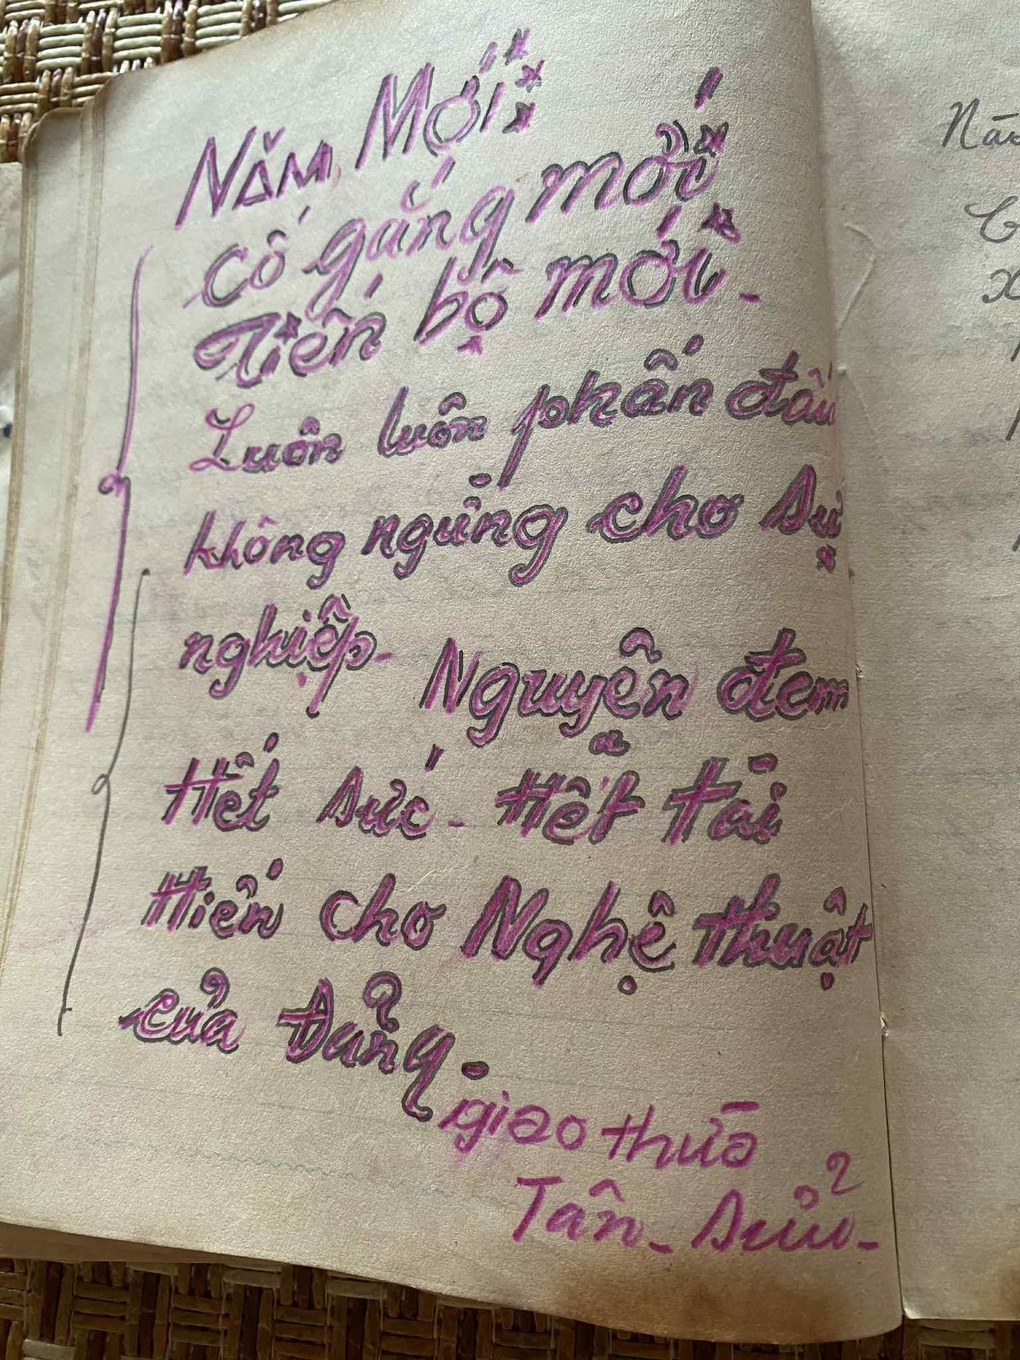 Năm Mới:
cố gắng mới
Tiến bộ mới -
Luôn luôn phấn đấu
không ngừng cho sự
nghiệp - Nguyện đem
Hết sức - Hết tài
Hiến cho Nghệ thuật
của Đảng -
giao thừa
Tân - Sửu -